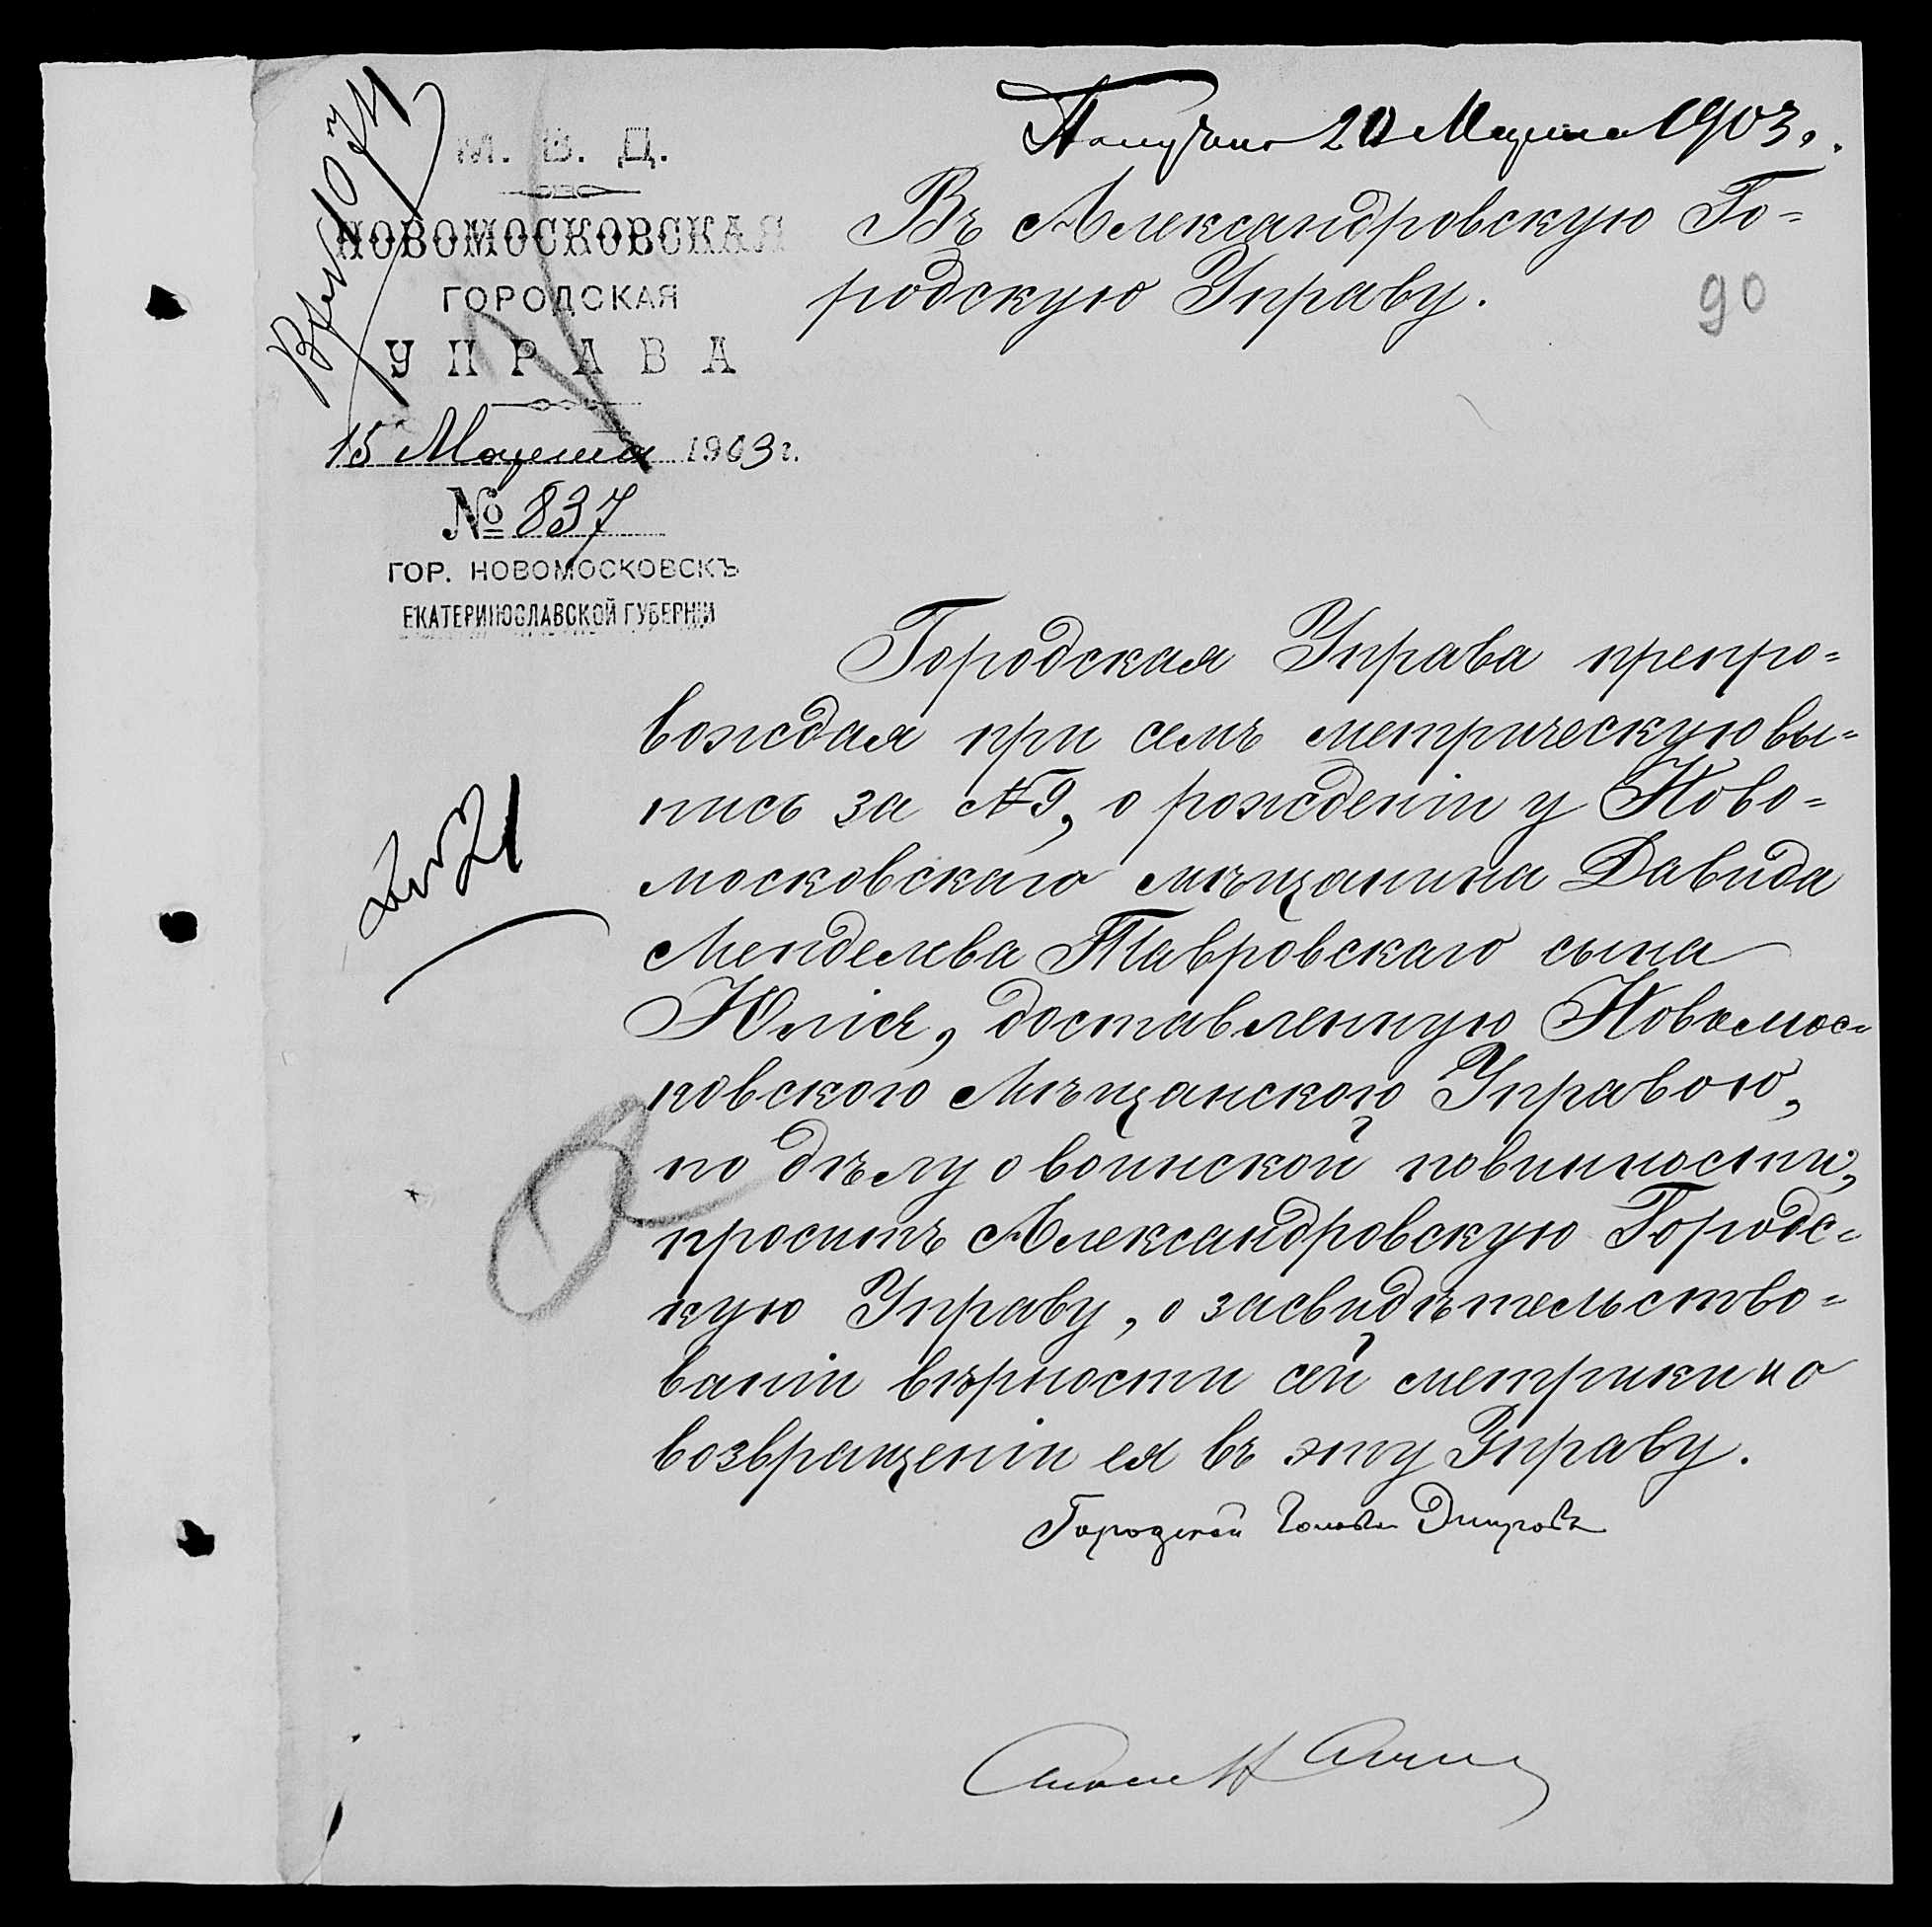 Получено 20 Марта 1903.
М. В. Д.
НОВОМОСКОВСКАЯ
ГОРОДСКАЯ
УПРАВА
15 Марта 1903 г.
№ 837
ГОР. НОВОМОСКОВСКЪ
ЕКАТЕРИНОСЛАВСКОЙ ГУБЕРНІИ
Въ Александровскую Го=
родскую Управу.
90
Городская Управа препро=
вождая при семъ метрическую вы=
пись за №9, о рожденіи у Ново=
московскаго мѣщанина Давида
Менделева Тавровскаго сына
Юлія, доставленную Новомос=
ковского Мѣщанского Управою,
по дѣлу о воинской повинности,
проситъ Александровскую Городс=
кую Управу, о засвидѣтельство=
ваніи вѣрности сей метрики и о
возвращеніи ея въ эту Управу.
Городской Голова